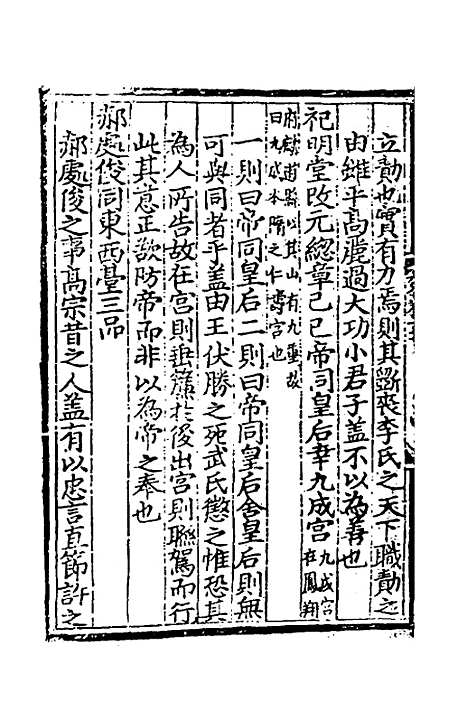 立勣也實有力焉則其斵喪李氏之天下職勣之
由雖平高麗過大功小君子蓋不以為善也
祀明堂改元總章己巳帝同皇后幸九成宮九成宮在鳳翔
府麟遊縣以其山有九重故曰九成本隋之仁壽宮也
一則曰帝同皇后二則曰帝同皇后舍皇后則無
可與同者乎蓋由王伏勝之死武氏懲之惟恐其
為人所告故在宮則垂簾於後出宮則聯駕而行
此其意正欲防帝而非以為帝之奉也
郝處俊同東西臺三品
郝處俊之事高宗昔之人蓋有以忠言直節許之